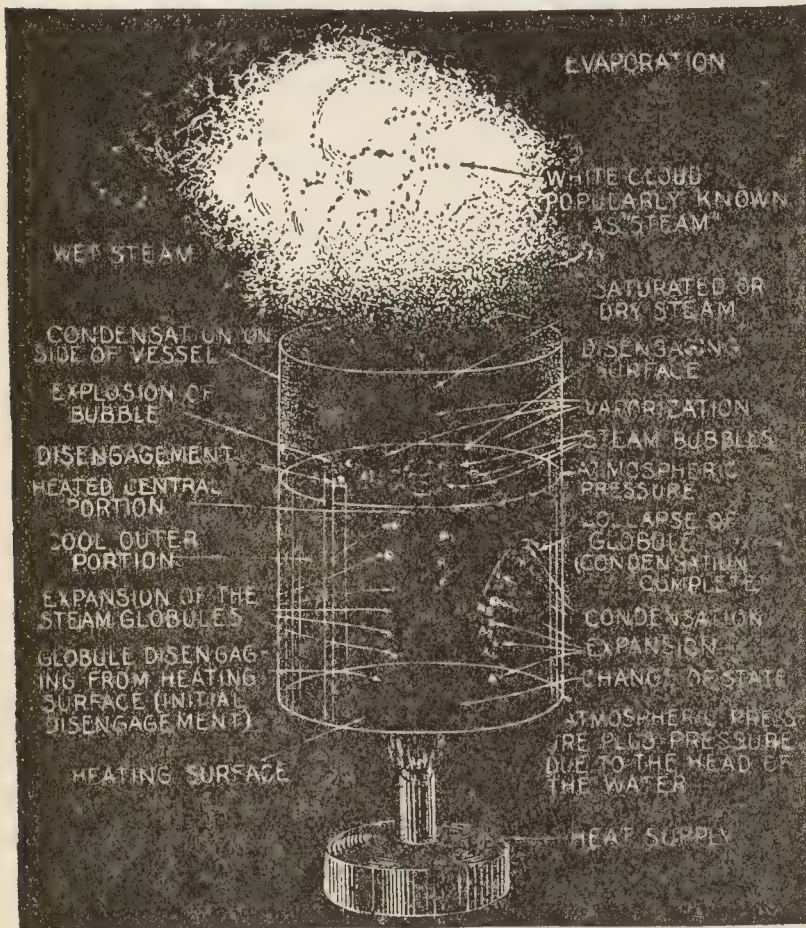 EVAPORATION
WHITE CLOUD
POPULARLY KNOWN
AS "STEAM"
WET STEAM
SATURATED OR
DRY STEAM
CONDENSATION ON
SIDE OF VESSEL
DISENGAGING
SURFACE
EXPLOSION OF
BUBBLE
VAPORIZATION
STEAM BUBBLES
DISENGAGEMENT
ATMOSPHERIC
PRESSURE
HEATED CENTRAL
PORTION
COLLAPSE OF
GLOBULE
(CONDENSATION
COMPLETE)
COOL OUTER
PORTION
EXPANSION OF THE
STEAM GLOBULES
CONDENSATION
EXPANSION
GLOBULE DISENGAG-
ING FROM HEATING
SURFACE (INITIAL
DISENGAGEMENT)
CHANGE OF STATE
ATMOSPHERIC PRESS
URE PLUS PRESSURE
DUE TO THE HEAD OF
THE WATER
HEATING SURFACE
HEAT SUPPLY